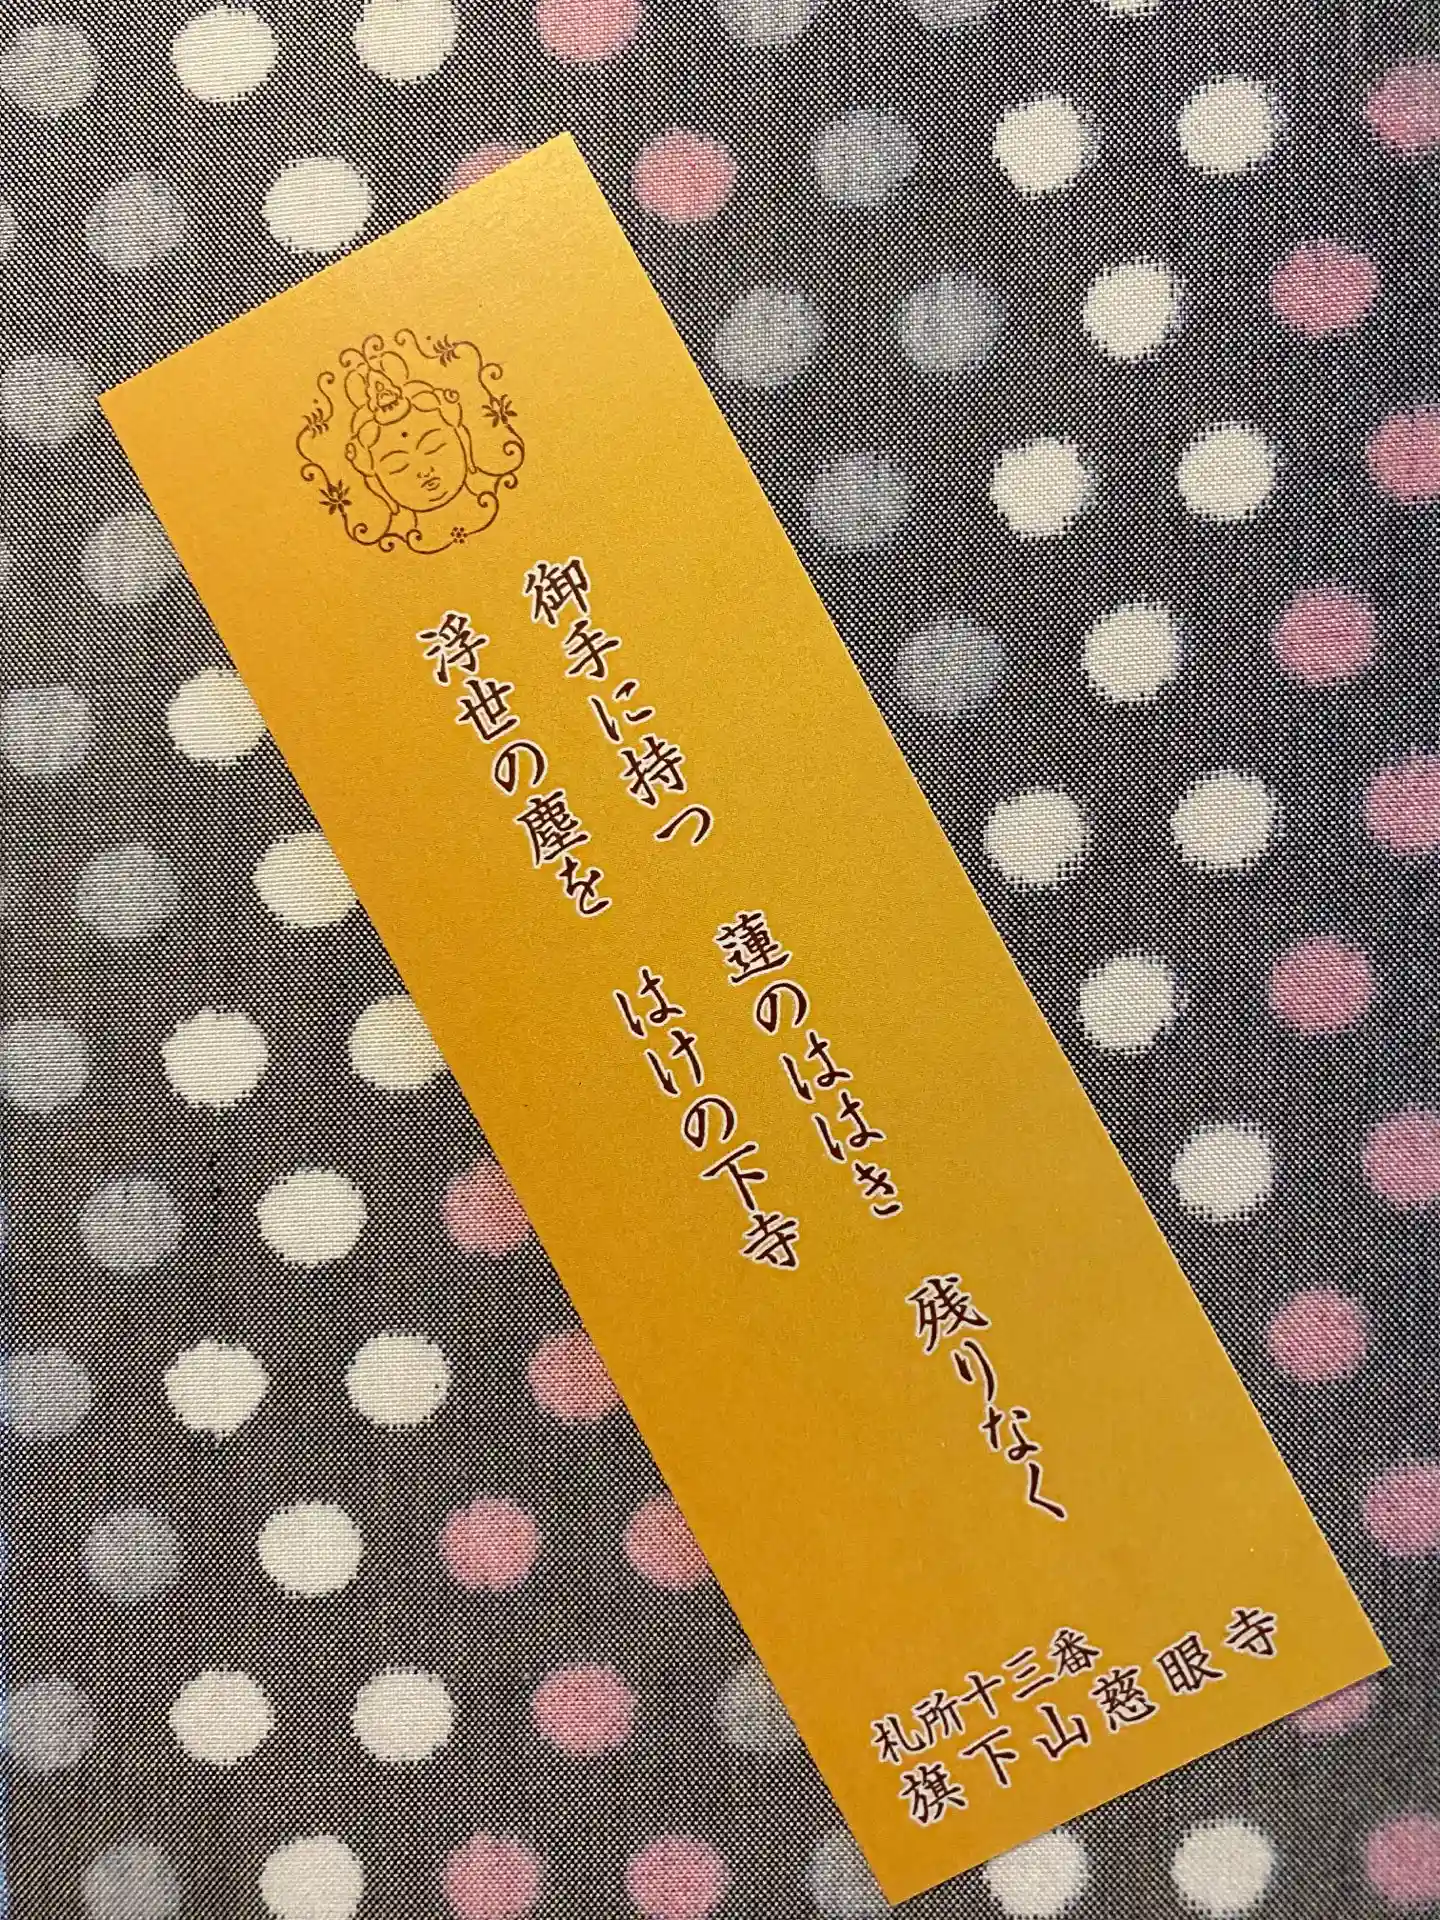 御手に持つ 蓮のははき 残りなく
浮世の塵を はけの下寺
札所十三番
旗下山慈眼寺